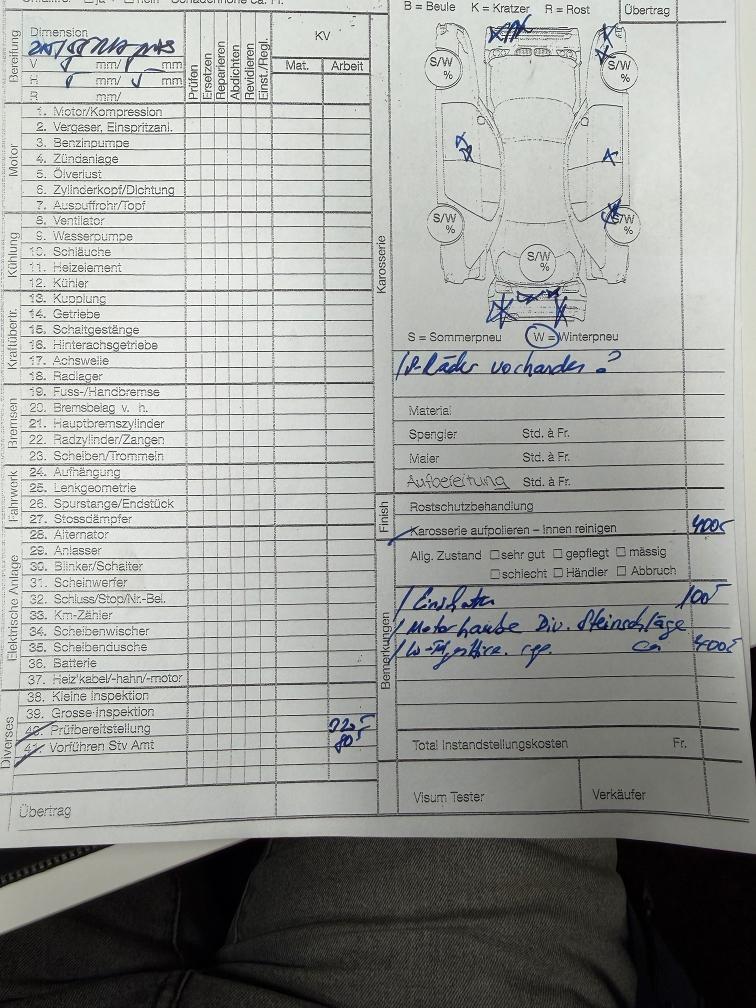 Schadenhöhe ca. Fr.
B = Beule K = Kratzer R = Rost
Übertrag
Bereifung
Dimension
V mm/ mm
H mm/ mm
R mm/
Prüfen
Ersetzen
Reparieren
Abdichten
Revidieren
Einst./Regl.
KV
Mat. Arbeit
Motor
1. Motor/Kompression
2. Vergaser, Einspritzanl.
3. Benzinpumpe
4. Zündanlage
5. Ölverlust
6. Zylinderkopf/Dichtung
7. Auspuffrohr/Topf
Kühlung
8. Ventilator
9. Wasserpumpe
10. Schläuche
11. Heizelement
12. Kühler
Kraftübertr.
13. Kupplung
14. Getriebe
15. Schaltgestänge
16. Hinterachsgetriebe
17. Achswelle
18. Radlager
Bremsen
19. Fuss-/Handbremse
20. Bremsbelag v. h.
21. Hauptbremszylinder
22. Radzylinder/Zangen
23. Scheiben/Trommeln
Fahrwerk
24. Aufhängung
25. Lenkgeometrie
26. Spurstange/Endstück
27. Stossdämpfer
Elektrische Anlage
28. Alternator
29. Anlasser
30. Blinker/Schalter
31. Scheinwerfer
32. Schluss/Stop/Nr.-Bel.
33. Km-Zähler
34. Scheibenwischer
35. Scheibendusche
36. Batterie
37. Heiz'kabel/-hahn/-motor
Diverses
38. Kleine Inspektion
39. Grosse Inspektion
40. Prüfbereitstellung
41. Vorführen Stv Amt
Übertrag
Karosserie
S/W %
S/W %
S/W %
S/W %
S/W %
S = Sommerpneu W = Winterpneu
S-Räder vorhanden ?
Material
Spengler Std. à Fr.
Maler Std. à Fr.
Aufbereitung Std. à Fr.
Finish
Rostschutzbehandlung
Karosserie aufpolieren – Innen reinigen
Allg. Zustand sehr gut gepflegt mässig
schlecht Händler Abbruch
Bemerkungen
Motorhaube Div. Steinschläge
ca
Total Instandstellungskosten Fr.
Visum Tester
Verkäufer